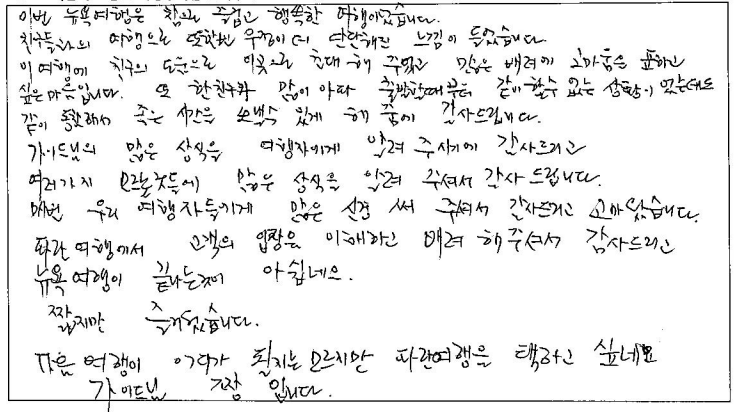 이번 뉴욕여행은 참으로 즐겁고 행복한 여행이었습니다.
친구들과의 여행으로 또한번 우정이 더 단단해진 느낌이 들었습니다.
이 여행에 친구의 도움으로 이곳으로 초대해 주었고 많은 배려에 고마움을 표하고
싶은 마음입니다. 또 한친구가 많이 아파 출발할때부터 같이 할수 없는 상황이 있었는데도
같이 동행해서 좋은 시간을 보낼수 있게 해 줌에 감사드립니다.
가이드님의 많은 상식을 여행자에게 알려 주시기에 감사드리고
여러가지 모르는것들에 많은 상식을 알려 주셔서 감사 드립니다.
매번 우리 여행자들에게 많은 신경 써 주셔서 감사드리고 고마웠습니다.
파란여행에서 고객의 입장을 이해하고 배려 해주셔서 감사드리고
뉴욕여행이 끝나는것이 아쉽네요.
짧지만 즐거웠습니다.
다음 여행이 어디가 될지는 모르지만 파란여행을 택하고 싶네요
가이드님 짱 입니다.